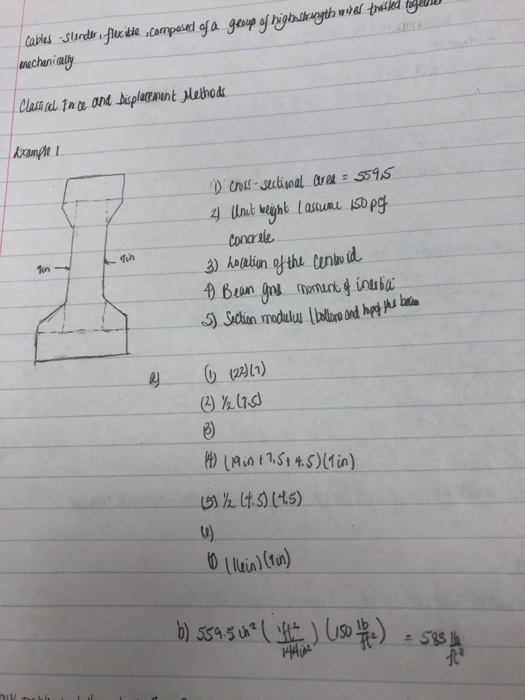 Cables - slender, flexible, composed of a group of high strength wires twisted together
mechanically
Classical Force and Displacement Methods
Example 1
1) cross-sectional area = 559.5
2) Unit weight (assume 150 pcf
concrete
3) Location of the centroid
4) Beam moment of inertia
5) Section modulus (bottom and top of the beam
9in
a) (1) (22)(7)
(2) 1/2 (7.5)
(3)
(4) (19in + 7.5 + 4.5)(9in)
(5) 1/2 (4.5)(4.5)
(6)
(7) (16in)(9in)
b) 559.5 in² (1ft²/144in²) (150 lb/ft²) = 583 lb/ft²